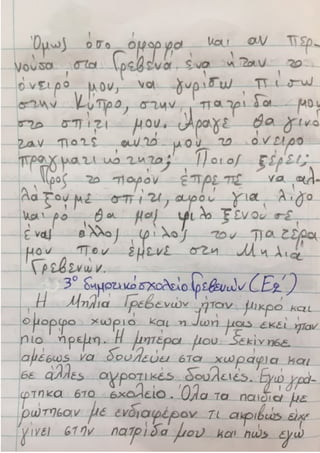 Όμως όσο όμορφα και αν περ-
νούσα στα Γρεβενά ένα ήταν το
όνειρό μου, να γυρίσω πίσω
στην Κύπρο, στην πατρίδα μου
στο σπίτι μου. Άραγε θα γινό
ταν ποτέ αυτό μου το όνειρο
πραγματικότητα; Ποιος ξέρει;
Προς το παρόν έπρεπε να αλ-
λάξουμε σπίτι, αφού για λίγο
καιρό θα μας φιλοξενούσε
ένας άλλος φίλος του πατέρα
μου που έμενε στη Μηλιά
Γρεβενών.
3ο δημοτικό σχολείο Γρεβενών (Ε2')
Η Μηλιά Γρεβενών ήταν μικρό και
όμορφο χωριό και η ζωή μας εκεί ήταν
πιο ήρεμη. Η μητέρα μου ξεκίνησε
αμέσως να δουλεύει στα χωράφια και
σε άλλες αγροτικές δουλειές. Εγώ γρά-
φτηκα στο σχολείο. Όλα τα παιδιά με
ρώτησαν με ενδιαφέρον τι ακριβώς είχε
γίνει στην πατρίδα μου και πώς εγώ